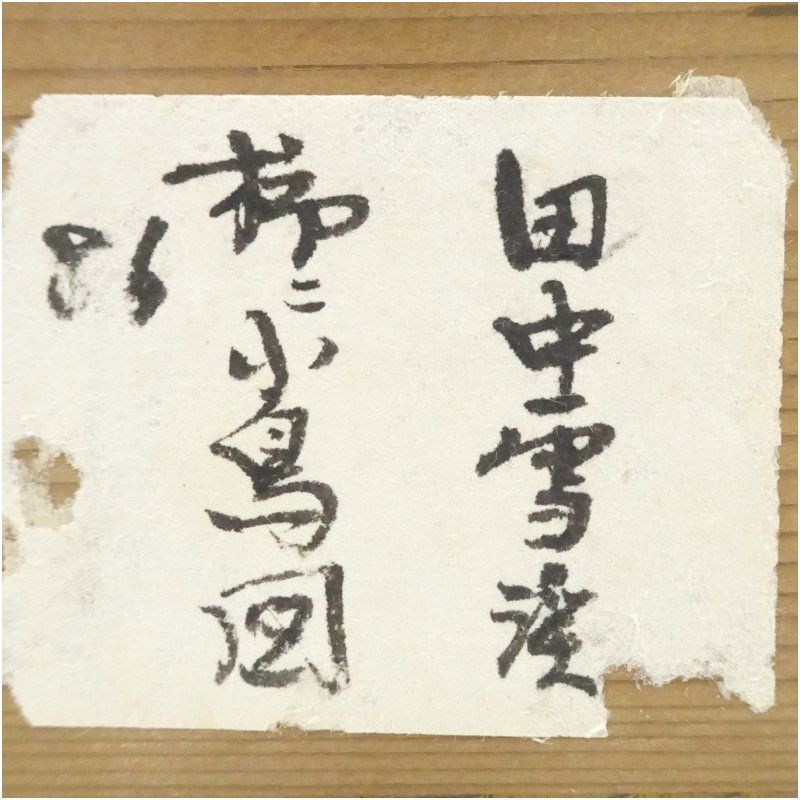 田中雪渓
柳ニ小鳥図
86